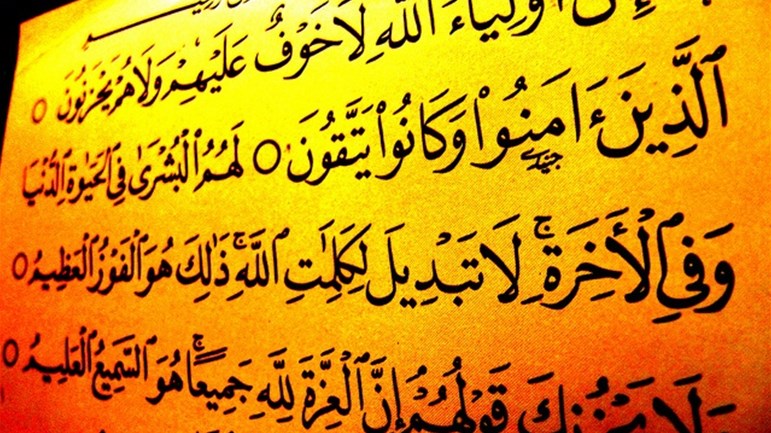 إِنَّ أَوْلِيَآءَ ٱللَّهِ لَا خَوْفٌ عَلَيْهِمْ وَلَا هُمْ يَحْزَنُونَ ○
ٱلَّذِينَ ءَامَنُوا۟ وَكَانُوا۟ يَتَّقُونَ ○ لَهُمُ ٱلْبُشْرَىٰ فِى ٱلْحَيَوٰةِ ٱلدُّنْيَا
وَفِى ٱلْأَخِرَةِ ۚ لَا تَبْدِيلَ لِكَلِمَٰتِ ٱللَّهِ ۚ ذَٰلِكَ هُوَ ٱلْفَوْزُ ٱلْعَظِيمُ ○
وَلَا يَحْزُنكَ قَوْلُهُمْ إِنَّ ٱلْعِزَّةَ لِلَّهِ جَمِيعًا ۚ هُوَ ٱلسَّمِيعُ ٱلْعَلِيمُ ○